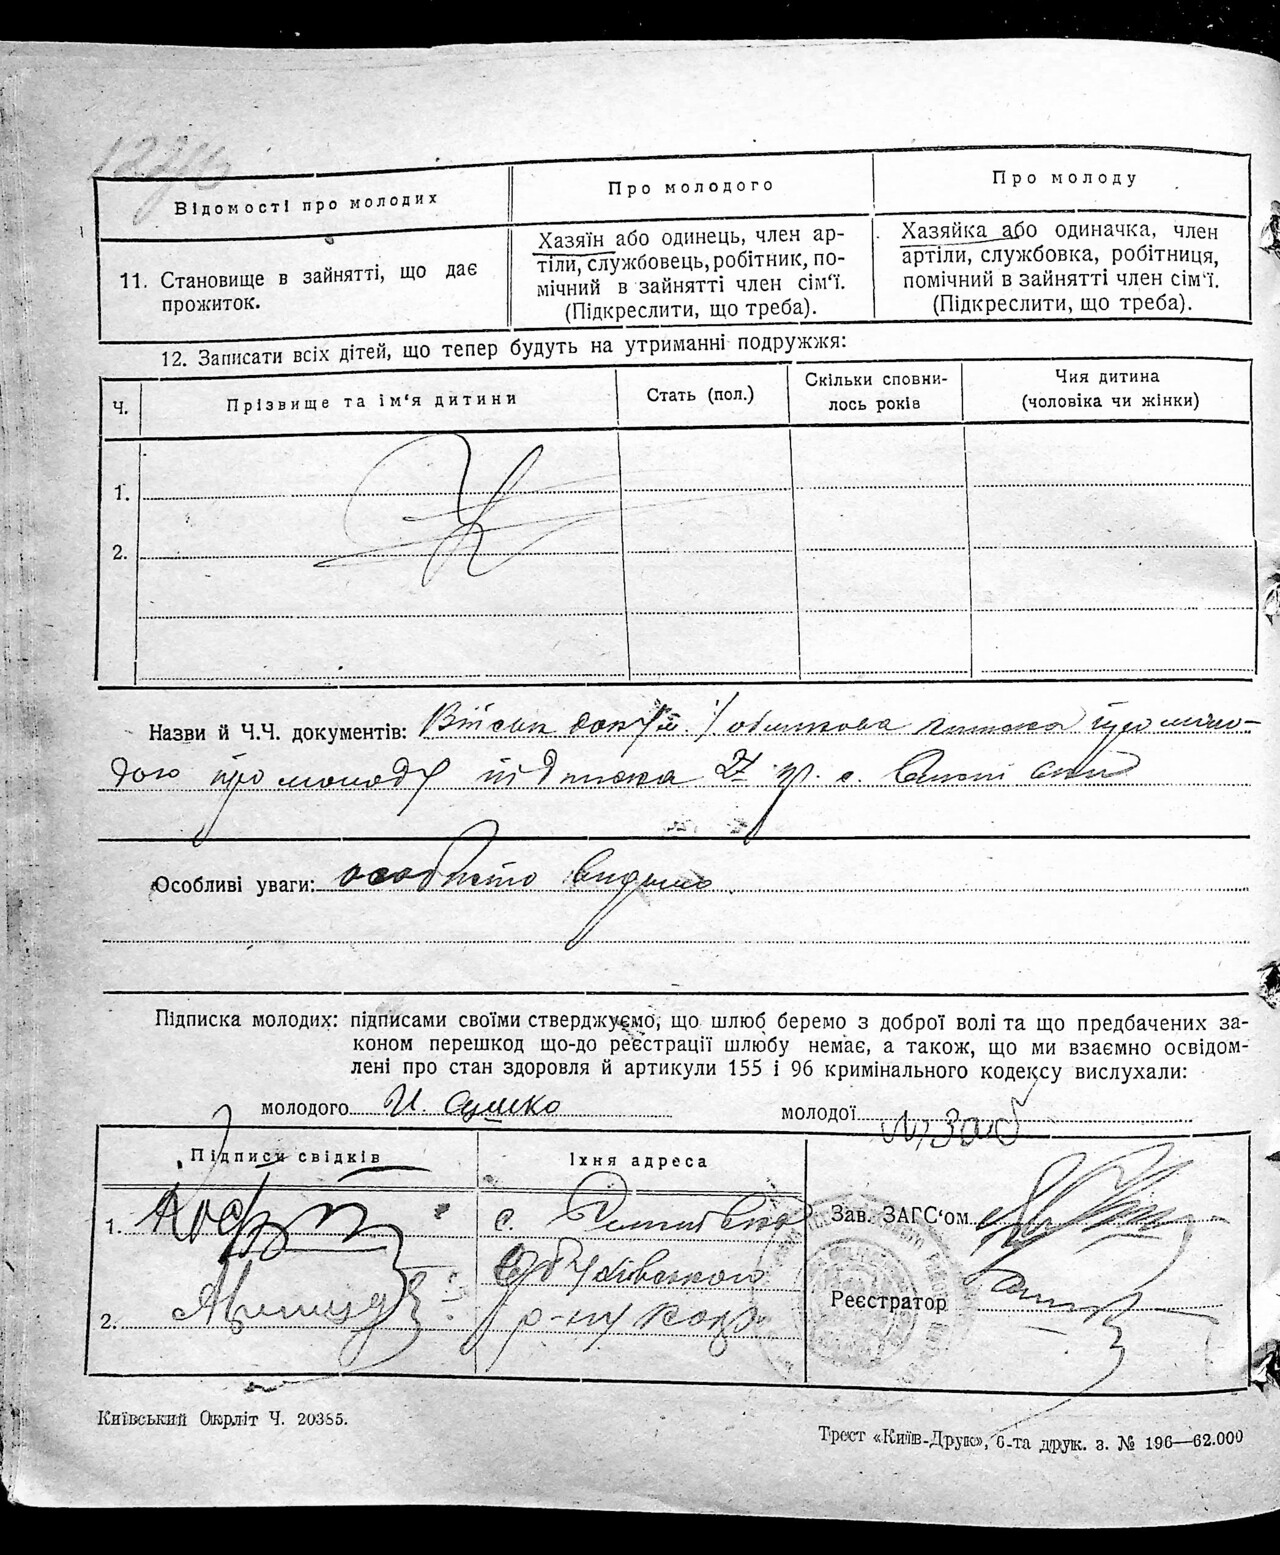 Відомості про молодих
Про молодого
Про молоду
11. Становище в зайнятті, що дає
прожиток.
Хазяїн або одинець, член ар-
тіли, службовець, робітник, по-
мічний в зайнятті член сім'ї.
(Підкреслити, що треба).
Хазяйка або одиначка, член
артіли, службовка, робітниця,
помічний в зайнятті член сім'ї.
(Підкреслити, що треба).
12. Записати всіх дітей, що тепер будуть на утриманні подружжя:
Ч.
Прізвище та ім'я дитини
Стать (пол.)
Скільки сповни-
лось років
Чия дитина
(чоловіка чи жінки)
1.
2.
Назви й Ч.Ч. документів: Військ докум. облікова книжка про моло-
дого про молоду підписка
Особливі уваги: особисто видимо
Підписка молодих: підписами своїми стверджуємо, що шлюб беремо з доброї волі та що предбачених за-
коном перешкод що-до реєстрації шлюбу немає, а також, що ми взаємно освідом-
лені про стан здоровля й артикули 155 і 96 кримінального кодексу вислухали:
молодого И. Сушко
молодої
Підписи свідків
Їхня адреса
1.
с.
Зав. ЗАГС'ом
Обухівського
Реєстратор
2.
р-ну
Київський Окрліт Ч. 20385.
Трест «Київ-Друк», 6-та друк. з. № 196—62.000